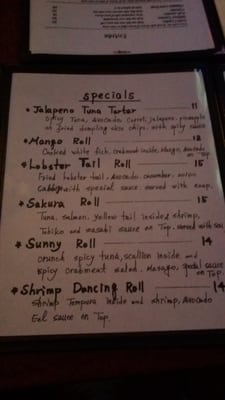 Entrée
specials
* Jalapeno Tuna Tartar 11
Spicy Tuna, Avocado, Carrot, jalapeno, pineapple
on fried dumpling skin chips, with spicy sauce
* Mango Roll 12
Cooked white fish, crabmeat inside, Mango, Avocado
on Top.
* Lobster Tail Roll 15
Fried lobster tail, Avocado, cucumber, onion
Cabbage with special sauce. served with soup.
* Sakura Roll 15
Tuna, salmon, yellow tail inside, shrimp,
Tobiko and wasabi sauce on Top. served with soup
* Sunny Roll 14
crunch spicy tuna, scallion inside and
spicy crabmeat salad, Masago, special sauce
on Top.
* Shrimp Dancing Roll 14
Shrimp Tempura inside and shrimp, Avocado
Eel sauce on Top.